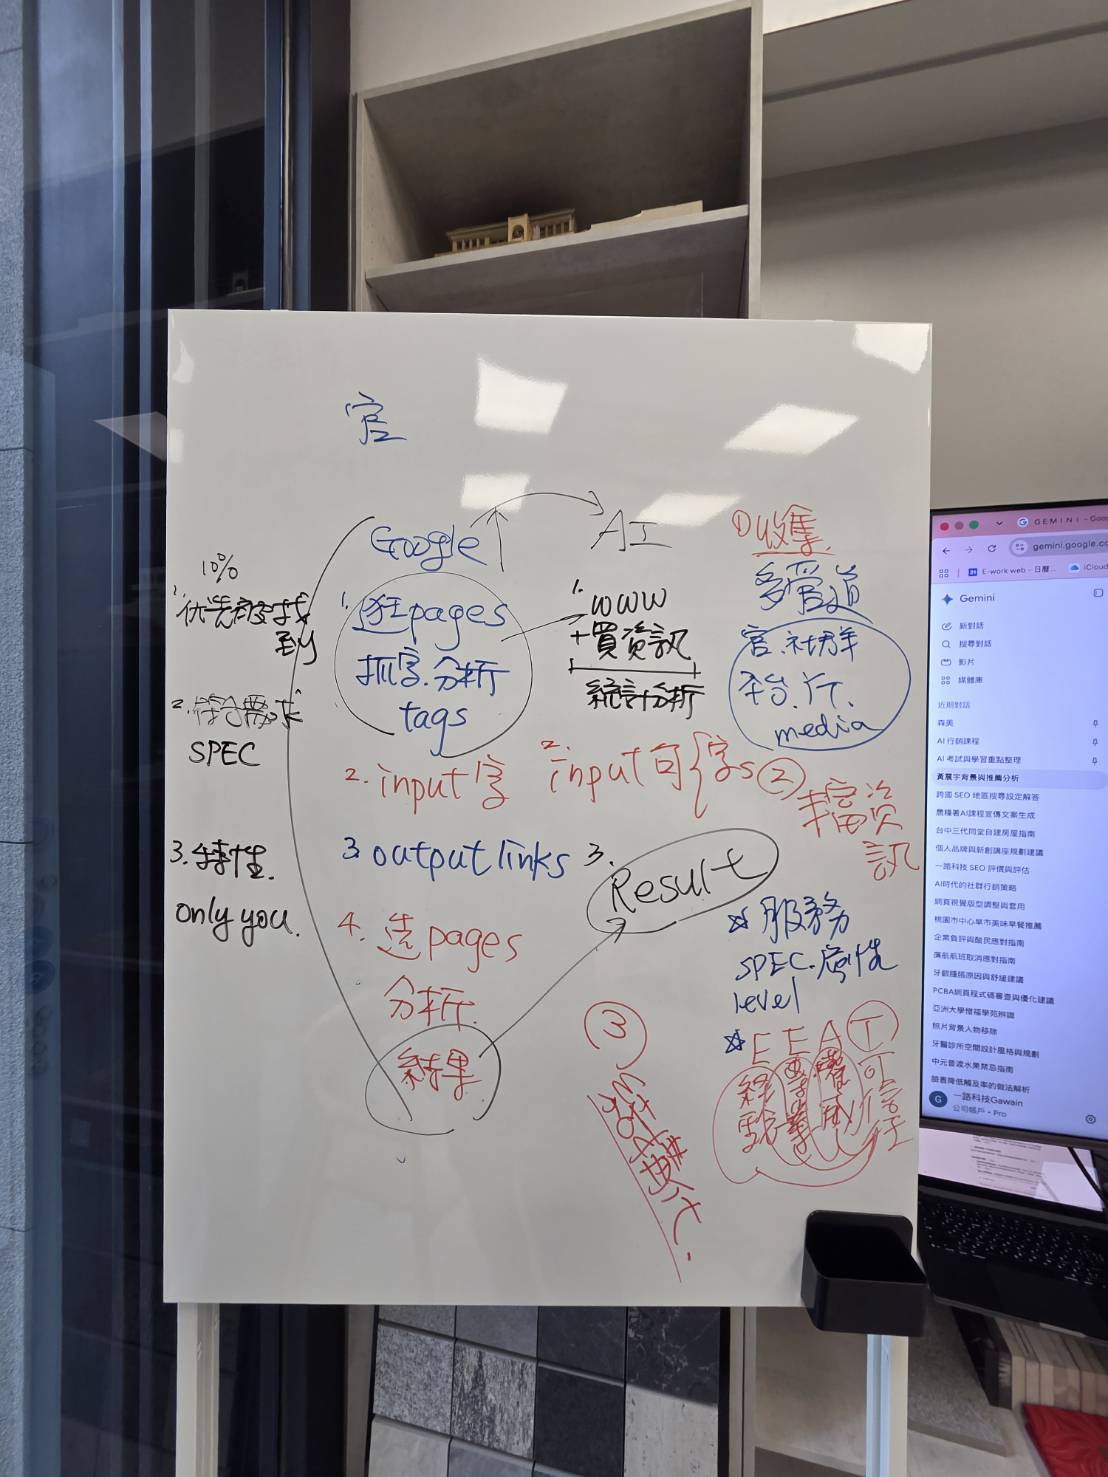 官
Google
AI
10%
1. 优先被找
到
2. 符合需求
SPEC
3. 特性.
only you.
1. 逛pages
抓字.分析
tags
2. input字
3 output links
4. 选pages
分析.
結果
1. www
+買資訊
統計分析
2. input句{字s
3. Result
①收集
多管道
官.社群
平台.
media
②
資
訊
☆服務
SPEC.
level
☆EEAT
經驗
權威
可信任
③
GEMINI - Goo
gemini.google.co
E-work web - 日曆...
iCloud
Gemini
新對話
搜尋對話
影片
媒體庫
近期對話
森美
AI 行銷課程
AI 考試與學習重點整理
黃展宇背景與推薦分析
跨國 SEO 地區搜尋設定解答
農糧署AI課程宣傳文案生成
台中三代同堂自建房屋指南
個人品牌與新創講座規劃建議
一路科技 SEO 評價與評估
AI時代的社群行銷策略
網頁視覺版型調整與套用
桃園市中心早市美味早餐推薦
企業負評與酸民應對指南
廉航航班取消應對指南
牙齦腫脹原因與舒緩建議
PCBA網頁程式碼審查與優化建議
亞洲大學惜福學苑辨識
照片背景人物移除
牙醫診所空間設計風格與規劃
中元普渡水果禁忌指南
臉書降低觸及率的做法解析
一路科技Gawain
公司帳戶 • Pro